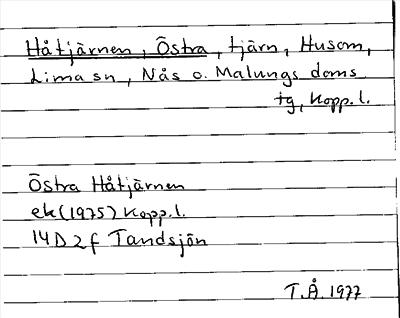 Håtjärnen, Östra, tjärn, Husom,
Lima sn, Nås o. Malungs doms
tg, Kopp. l.
Östra Håtjärnen
ek (1975) Kopp. l.
14D 2f Tandsjön
T.Å. 1977